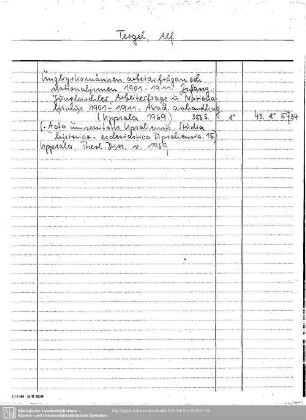 Tergel, Alf
Ungkyrkomännen, arbetarfrågan och
nationalismen 1901-1911.
Jungkirchler, Arbeiterfrage u. Nationa-
lismus 1901-1911. Akad. avhandling
(Uppsala 1969) 355 S. 8° 43. 8° 5734
(= Acta universitatis Upsaliensis. Studia
historico-ecclesiastica Upsaliensia. 15)
Uppsala, Theol. Diss. v. 1969
Sächsische Landesbibliothek -
Staats- und Universitätsbibliothek Dresden